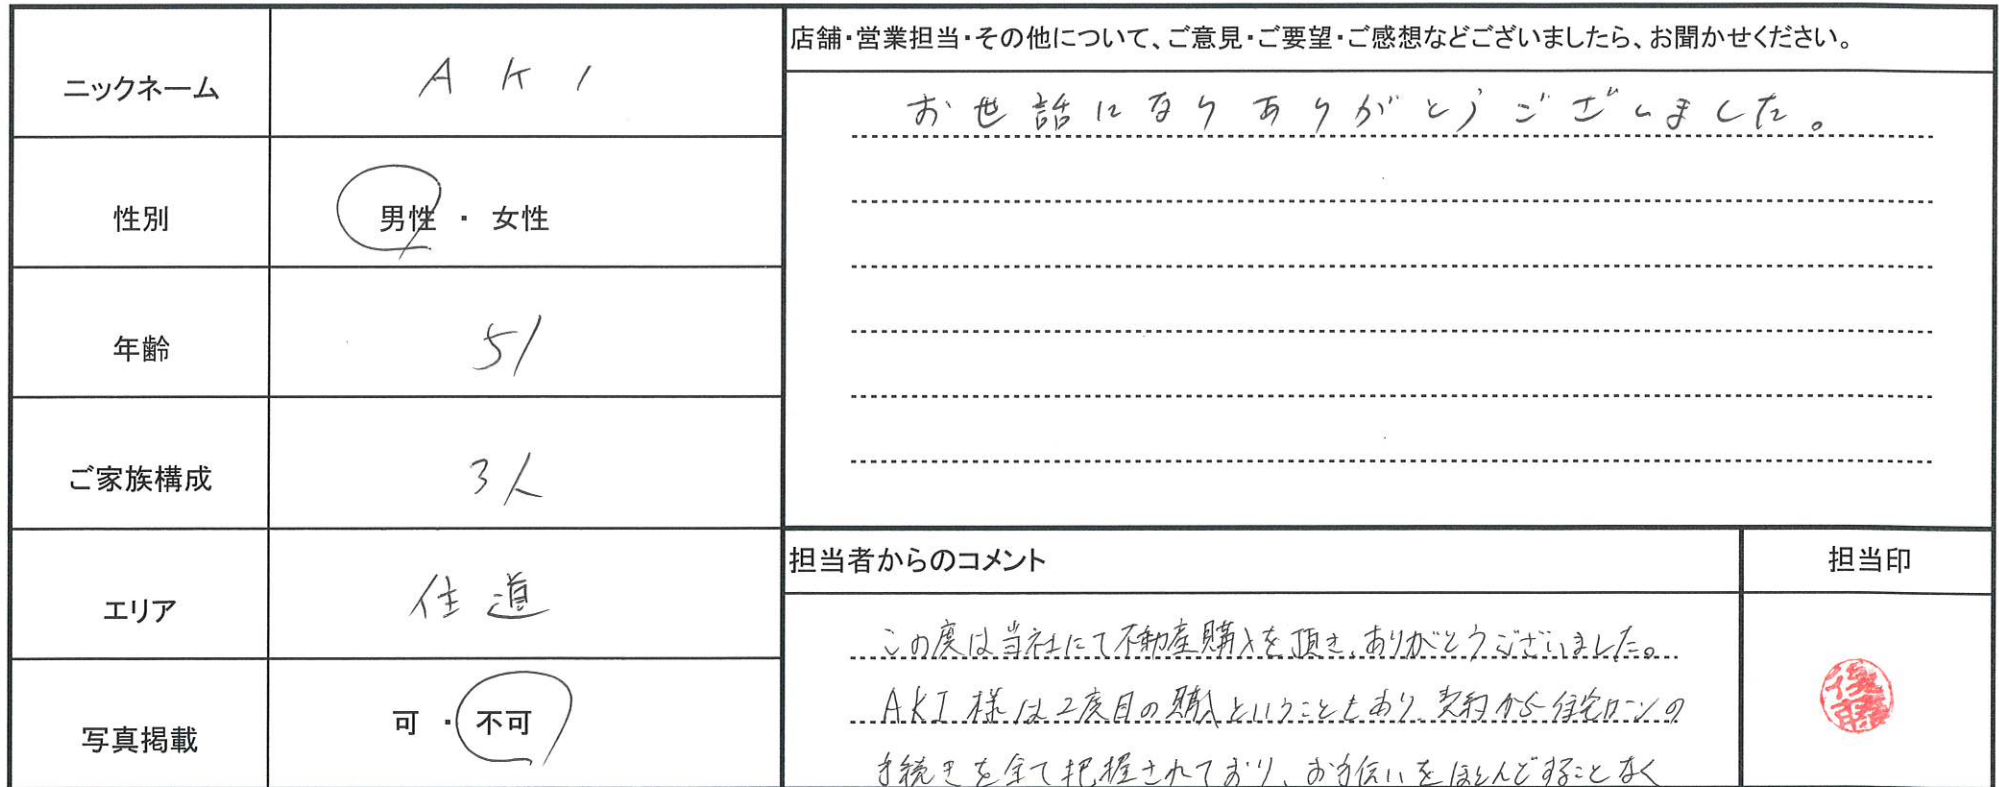 ニックネーム
AKI
性別
男性 ・ 女性
年齢
51
ご家族構成
3人
エリア
住道
写真掲載
可 ・ 不可
店舗・営業担当・その他について、ご意見・ご要望・ご感想などございましたら、お聞かせください。
お世話になりありがとうございました。
担当者からのコメント
この度は当社にて不動産購入を頂き、ありがとうございました。
AKI様は2度目の購入ということもあり、契約から住宅ローンの
手続きを全て把握されており、お手伝いをほとんどすることなく
担当印
後藤